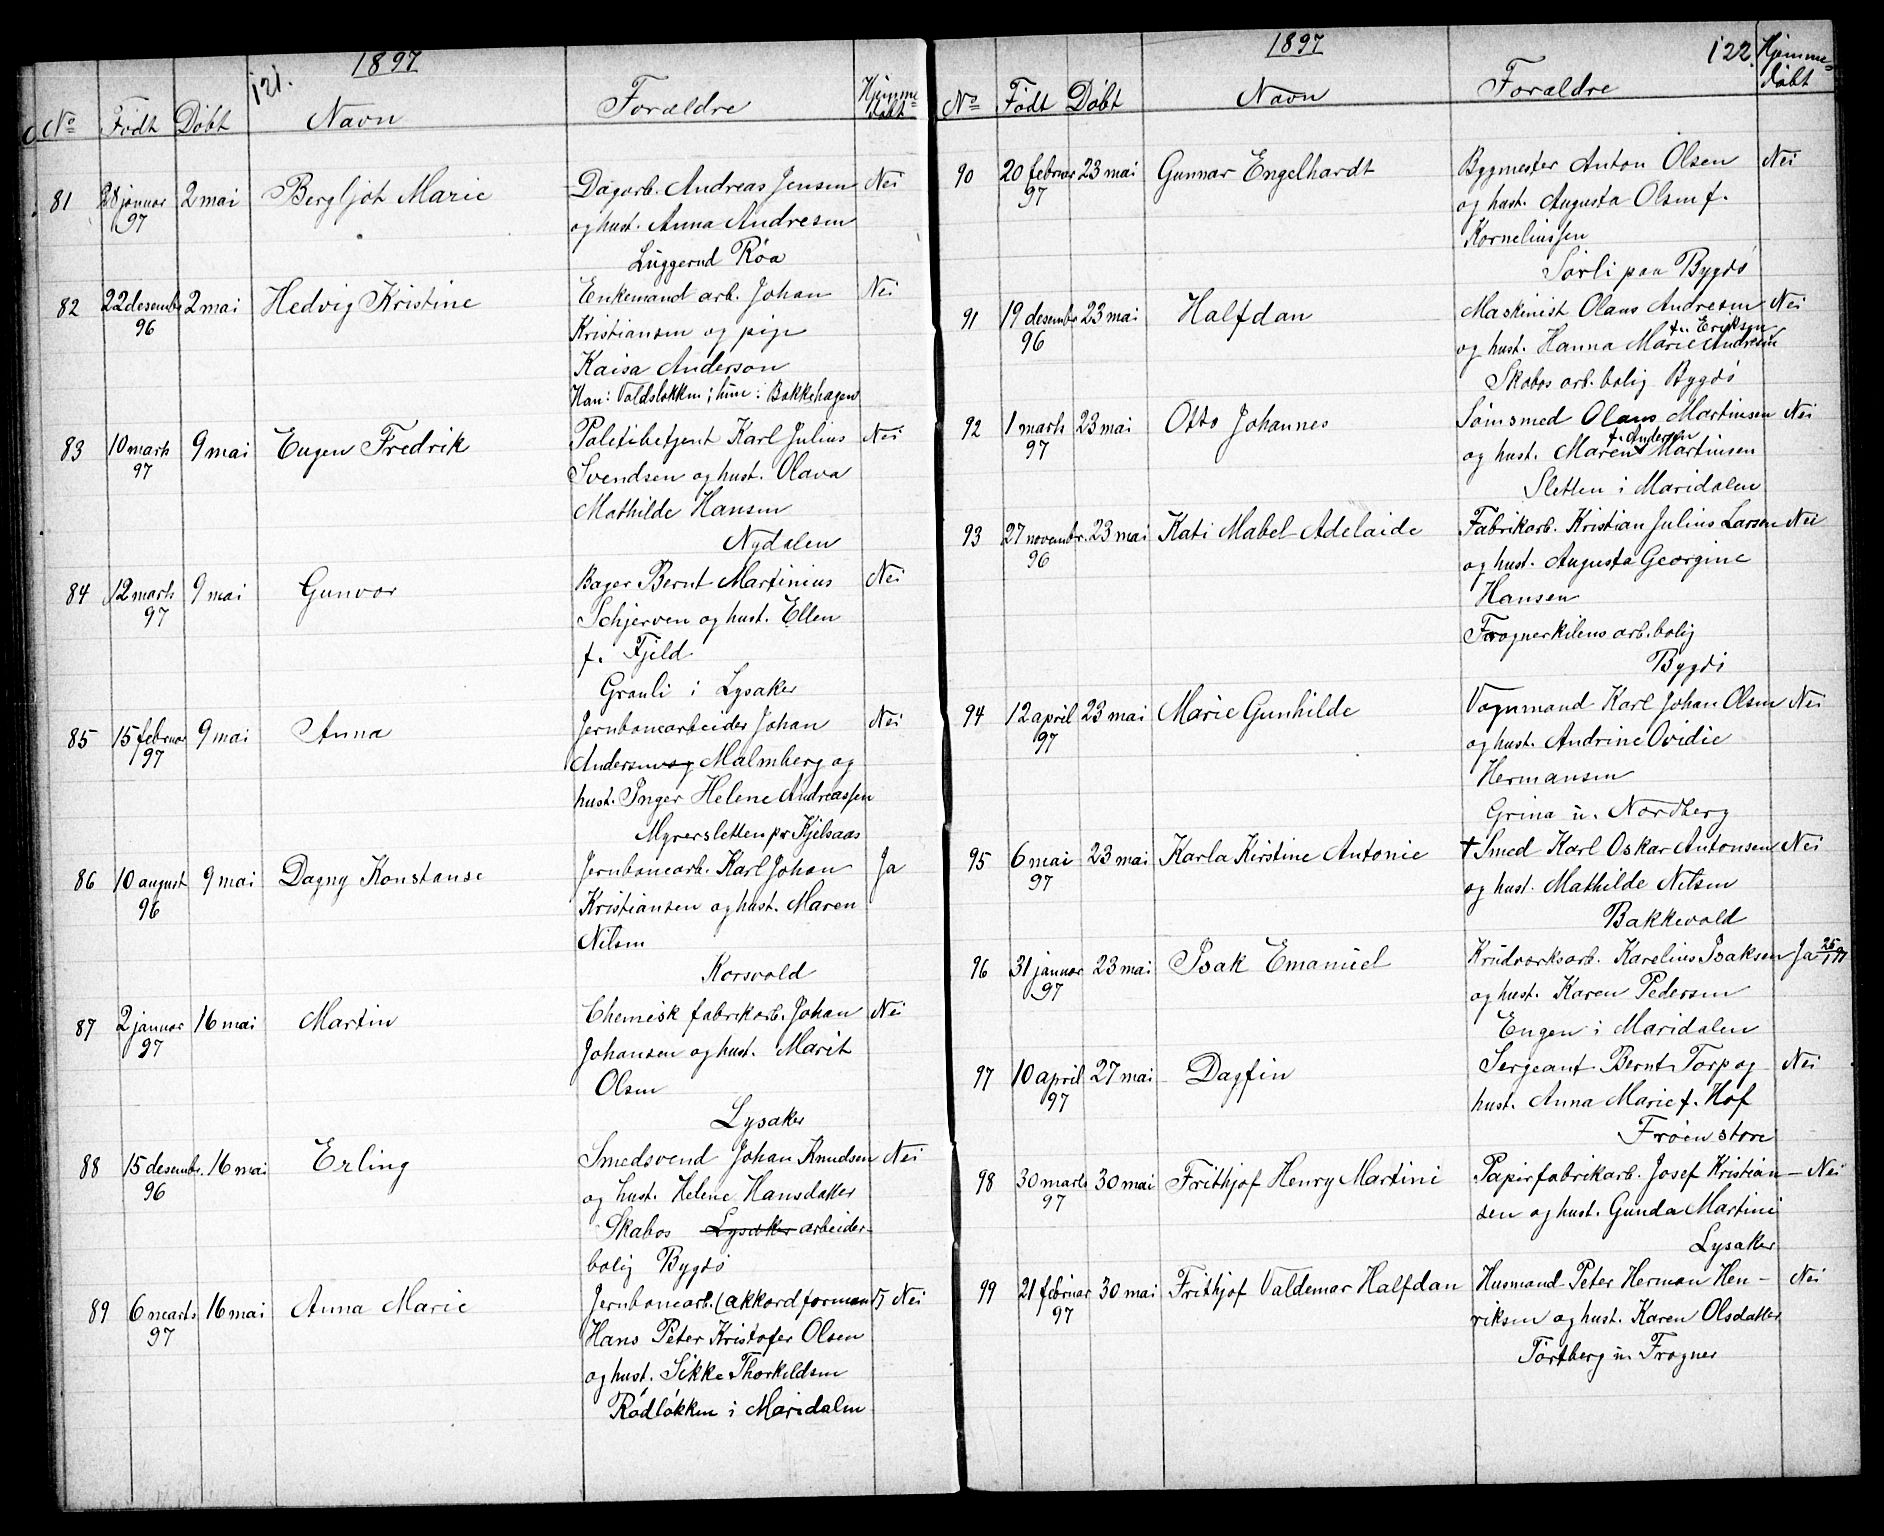 121.
1897
No
Født
Døbt
Navn
Forældre
Hjemme-
døbt
81
28 januar
97
2 mai
Bergljot Marie
Dagarb. Andreas Jensen
og hust. Anna Andresen
Luggerud Røa
Nei
82
22 desembr
96
2 mai
Hedvig Kristine
Enkemand arb. Johan
Kristiansen og pige
Kaisa Anderson
Han: Valdsløkken; hun: Bakkehagen
Nei
83
10 marts
97
9 mai
Eugen Fredrik
Politibetjent Karl Julius
Svendsen og hust. Olava
Mathilde Hansen
Nydalen
Nei
84
12 marts
97
9 mai
Gunvor
Bager Bernt Martinius
Schjerven og hust. Ellen
f. Fjeld
Granli i Lysaker
Nei
85
15 februar
97
9 mai
Anna
Jernbanearbeider Johan
Andersen og Malmberg og
hust. Inger Helene Andreassen
Myrersletten pr Kjelsaas
Nei
86
10 august
96
9 mai
Dagny Konstanse
Jernbanearb. Karl Johan
Kristiansen og hust. Maren
Nilsen
Korsvold
Ja
87
2 januar
97
16 mai
Martin
Chemisk fabrikarb. Johan
Johansen og hust. Marit
Olsen
Lysaker
Nei
88
15 desembr.
96
16 mai
Erling
Smedsvend Johan Knudsen
og hust. Helene Hansdatter
Skabos Lysaker arbeider-
bolig Bygdø
Nei
89
6 marts
97
16 mai
Anna Marie
Jernbanearb. (akkordformand)
Hans Peter Kristofer Olsen
og hust. Sikke Thorkildsen
Rødløkken i Maridalen
Nei
1897
122.
No
Født
Døbt
Navn
Forældre
Hjemme-
døbt
90
20 februar
97
23 mai
Gunnar Engelhardt
Bygmester Anton Olsen
og hust. Augusta Olsen f.
Korneliussen
Sørli paa Bygdø
Nei
91
19 desembr
96
23 mai
Halfdan
Maskinist Olaus Andresen
f. Eriksen
og hust. Hanna Marie Andresen
Skabos arb. bolig Bygdø
Nei
92
1 marts
97
23 mai
Otto Johannes
Sømsmed Olaus Martinsen
f. Andersen
og hust. Maren Martinsen
Sletten i Maridalen
Nei
93
27 novembr.
96
23 mai
Kati Mabel Adelaide
Fabrikarb. Kristian Julius Larsen
og hust. Augusta Georgine
Hansen
Frognerkilens arb. bolig
Bygdø
Nei
94
12 april
97
23 mai
Marie Gunhilde
Vognmand Karl Johan Olsen
og hust. Andrine Ovidie
Hermansen
Grina u. Nordberg
Nei
95
6 mai
97
23 mai
Karla Kirstine Antonie
† Smed Karl Oskar Antonsen
og hust. Mathilde Nilsen
Bakkevold
Nei
96
31 januar
97
23 mai
Isak Emanuel
Krudværksarb. Karelius Isaksen
og hust. Karen Pedersen
Engen i Maridalen
Ja
97
10 april
97
27 mai
Dagfin
Sergeant Bernt Torp og
hust. Anna Marie f. Hof
Frøen store
Nei
98
30 marts
97
30 mai
Frithjof Henry Martini
Papirfabrikarb. Josef Kristian-
sen og hust. Gunda Martini
Lysaker
Nei
99
21 februar
97
30 mai
Frithjof Valdemar Halfdan
Husmand Peter Herman Hen-
riksen og hust. Karen Olsdatter
Tørtberg u. Frogner
Nei